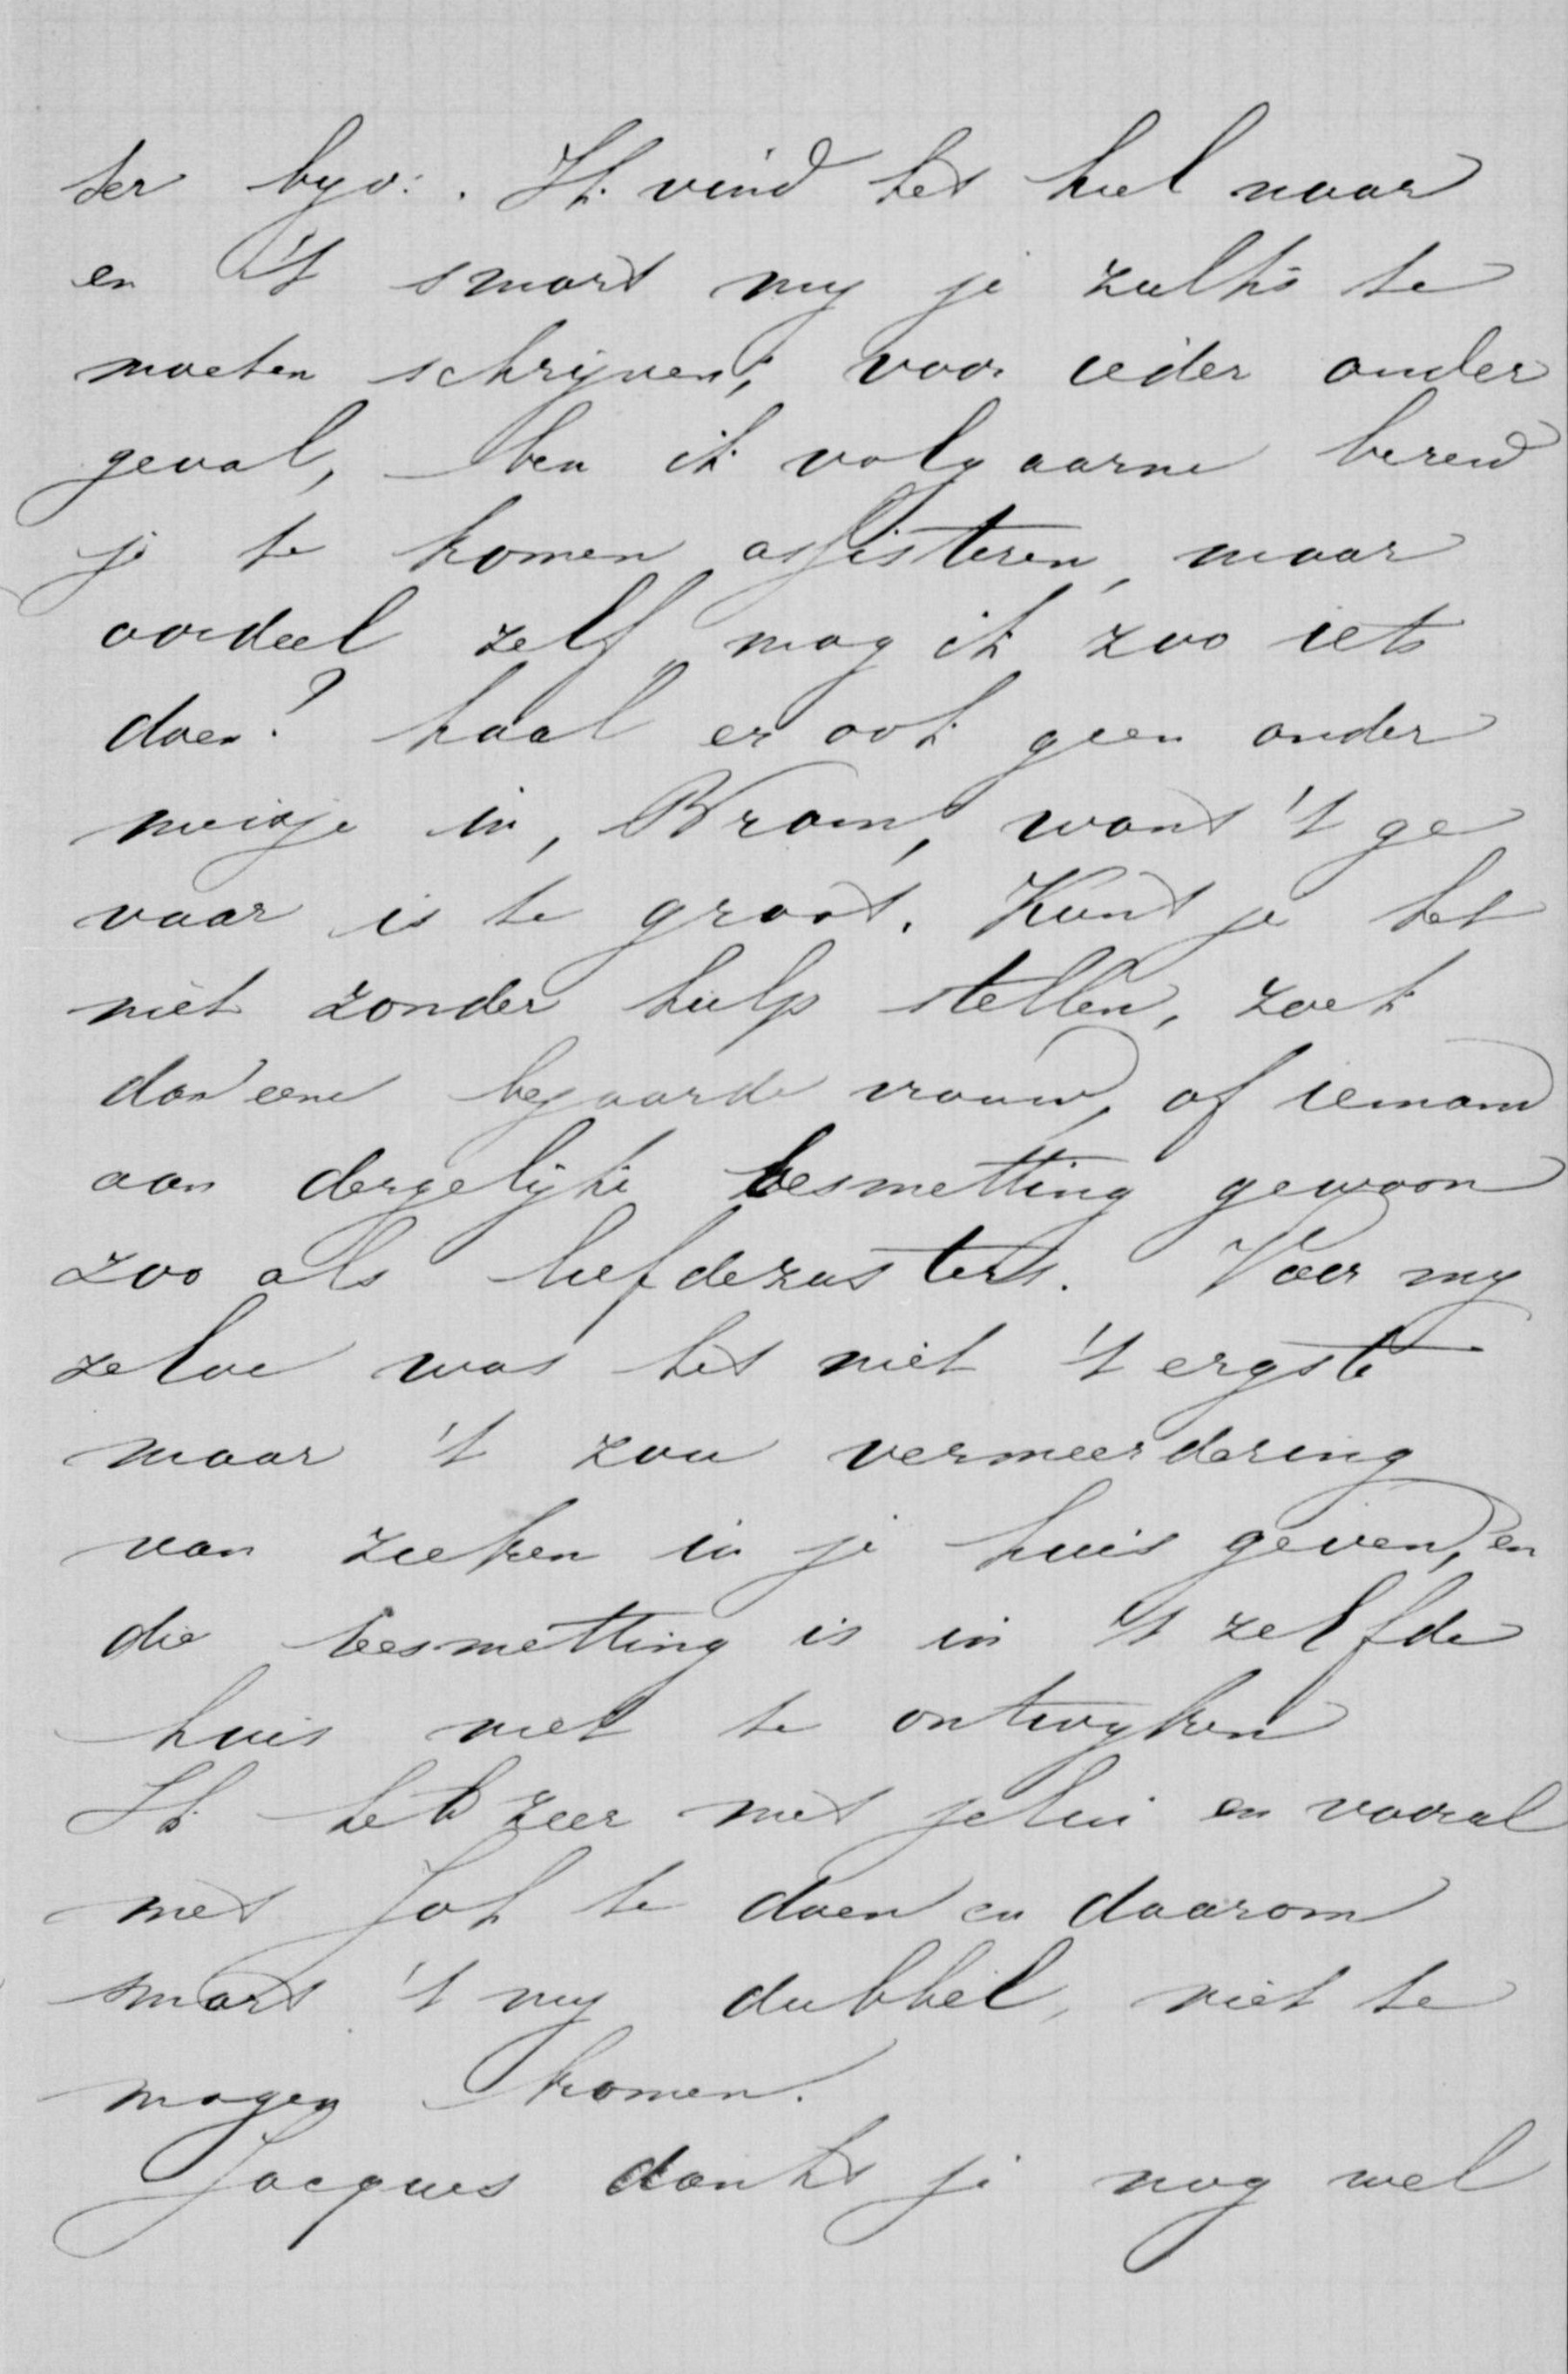 ter byv: . Ik vind het heel naar
en 't smart my je zulks te
moeten schrijven; voor ieder ander
geval, ben ik volgaarne bereid
je te komen assisteren, maar
oordeel zelf mag ik zoo iets
doen? haal er ook geen ander
meisje in, Bram, want 't ge
vaar is te groot. Kunt je het
niet zonder hulp stellen, zoek
dan eene bejaarde vrouw, of iemand
aan dergelijke besmetting gewoon
zoo als liefdezusters. Voor my
zelve was het niet 't ergste
maar 't zou vermeerdering
van zieken in je huis geven, en
die besmetting is in 't zelfde
huis niet te ontwyken
Ik heb zeer met jelui en vooral
met Joh te doen en daarom
smart 't my dubbel, niet te
mogen komen.
Jacques dankt je nog wel